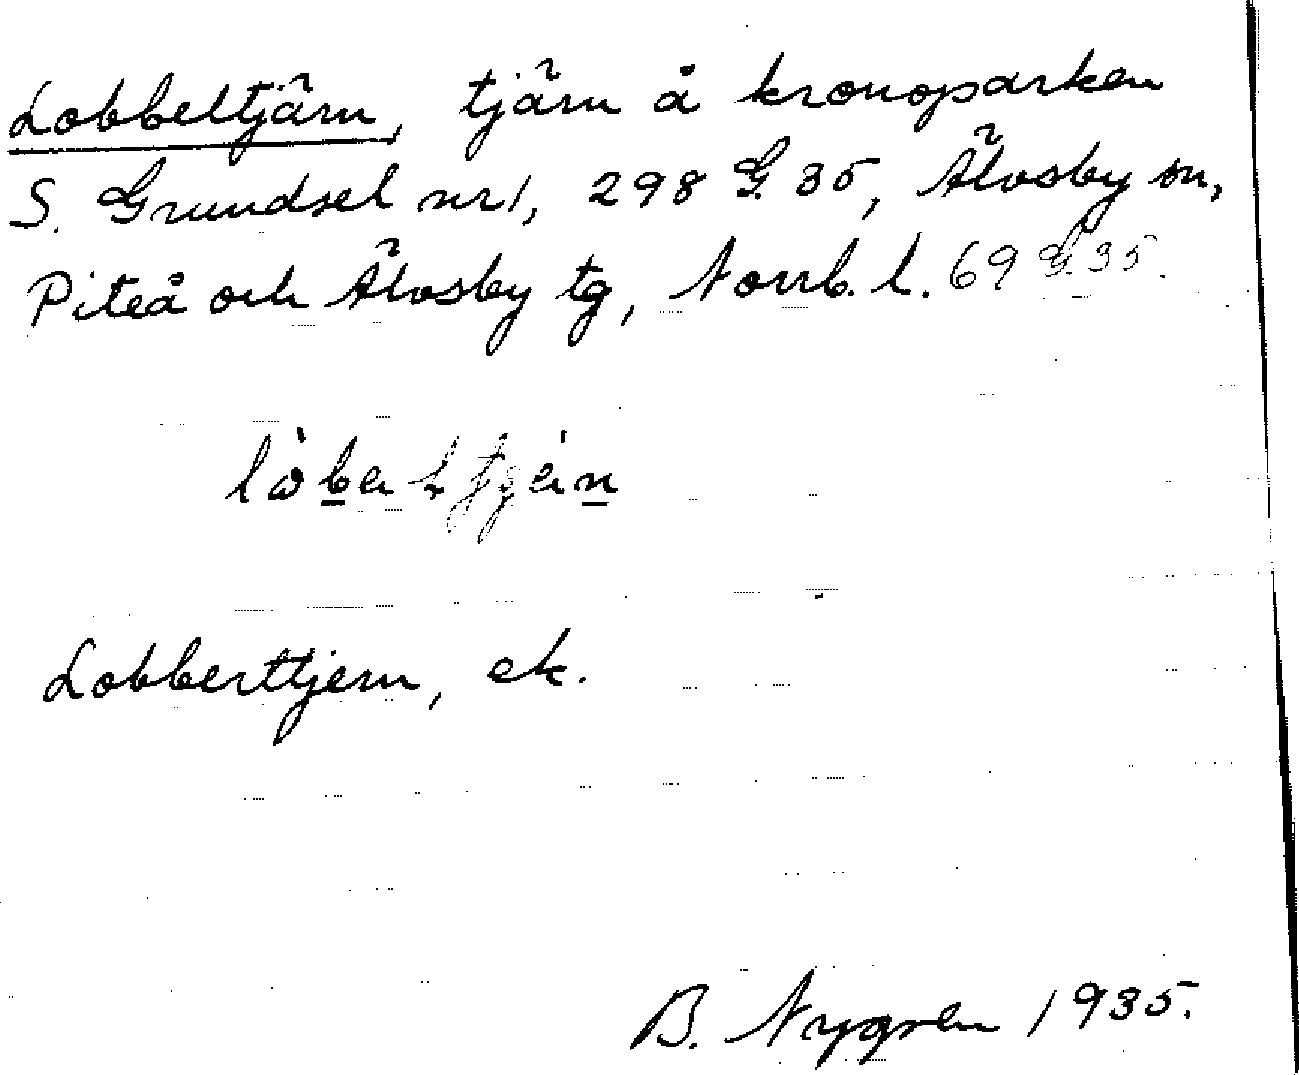 Lobbeltjärn, tjärn å kronoparken
S. Grundsel nr 1, 298 G. 35, Älvsby sn,
Piteå och Älvsby tg, Norrb. l. 69 G. 35.
Lobberttjern, ek.
B. Nygren 1935.